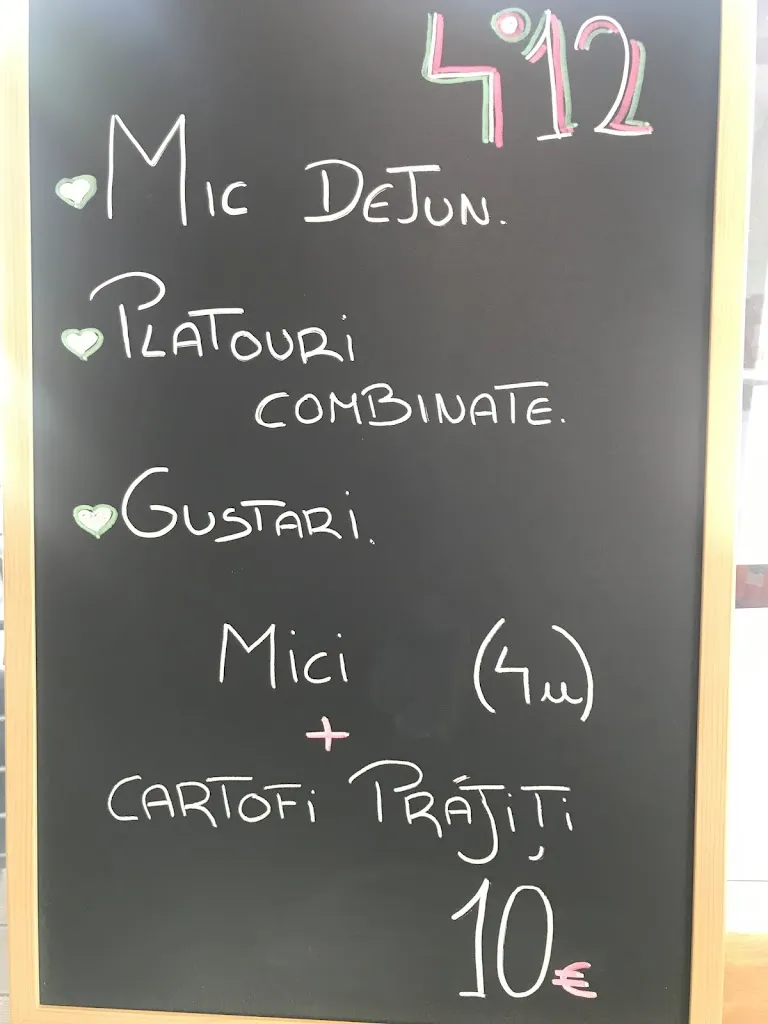 4°12
Mic Dejun.
Platouri
combinate.
Gustari.
Mici (4u)
+
cartofi prájiți
10€